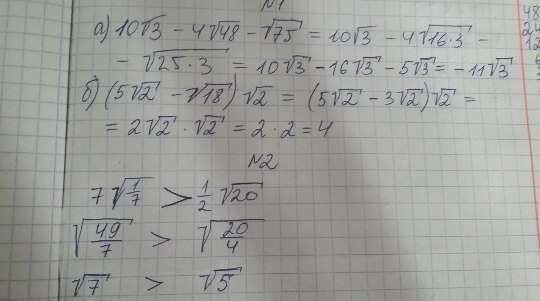 N1
а) 10√3 - 4√48 - √75 = 10√3 - 4√16·3 -
- √25·3 = 10√3 - 16√3 - 5√3 = -11√3
б) (5√2 - √18) √2 = (5√2 - 3√2)√2 =
= 2√2 · √2 = 2·2 = 4
N2
7√1/7 > 1/2 √20
√49/7 > √20/4
√7 > √5
48
24
12
6
3